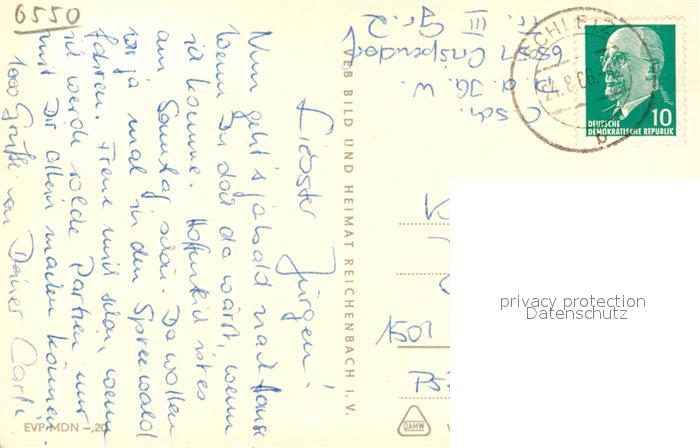 6550
Liebster Jürgen!
Nun geht's ja bald nach Hause
Wenn Du doch da wärst, wenn
ich komme. Hoffentlich ist es
am Sonntag schön. Da wollen
wir ja mal in den Spreewald
fahren. Freue mich schon, wenn
ich werde solche Partien nur
mit Dir allein machen können.
1000 Grüße von Deiner
EVP MDN -,20
VEB BILD UND HEIMAT REICHENBACH I. V.
DAMW
6551 Crispendorf
Kr.
III Gr. 2
SCHLEIZ
DEUTSCHE
DEMOKRATISCHE REPUBLIK
10
1501
privacy protection
Datenschutz